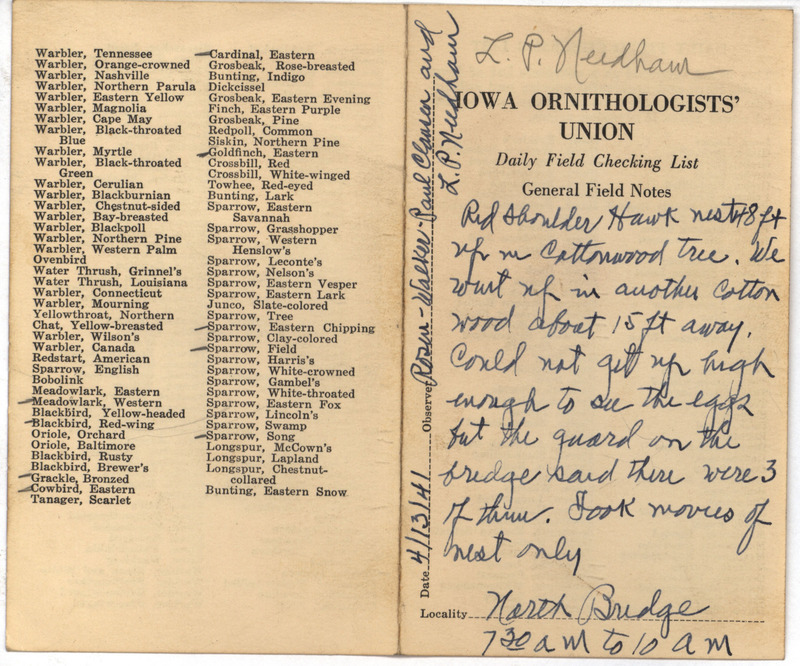 Warbler, Tennessee
Warbler, Orange-crowned
Warbler, Nashville
Warbler, Northern Parula
Warbler, Eastern Yellow
Warbler, Magnolia
Warbler, Cape May
Warbler, Black-throated
Blue
Warbler, Myrtle
Warbler, Black-throated
Green
Warbler, Cerulian
Warbler, Blackburnian
Warbler, Chestnut-sided
Warbler, Bay-breasted
Warbler, Blackpoll
Warbler, Northern Pine
Warbler, Western Palm
Ovenbird
Water Thrush, Grinnel's
Water Thrush, Louisiana
Warbler, Connecticut
Warbler, Mourning
Yellowthroat, Northern
Chat, Yellow-breasted
Warbler, Wilson's
Warbler, Canada
Redstart, American
Sparrow, English
Bobolink
Meadowlark, Eastern
Meadowlark, Western
Blackbird, Yellow-headed
Blackbird, Red-wing
Oriole, Orchard
Oriole, Baltimore
Blackbird, Rusty
Blackbird, Brewer's
Grackle, Bronzed
Cowbird, Eastern
Tanager, Scarlet
Cardinal, Eastern
Grosbeak, Rose-breasted
Bunting, Indigo
Dickcissel
Grosbeak, Eastern Evening
Finch, Eastern Purple
Grosbeak, Pine
Redpoll, Common
Siskin, Northern Pine
Goldfinch, Eastern
Crossbill, Red
Crossbill, White-winged
Towhee, Red-eyed
Bunting, Lark
Sparrow, Eastern
Savannah
Sparrow, Grasshopper
Sparrow, Western
Henslow's
Sparrow, Leconte's
Sparrow, Nelson's
Sparrow, Eastern Vesper
Sparrow, Eastern Lark
Junco, Slate-colored
Sparrow, Tree
Sparrow, Eastern Chipping
Sparrow, Clay-colored
Sparrow, Field
Sparrow, Harris's
Sparrow, White-crowned
Sparrow, Gambel's
Sparrow, White-throated
Sparrow, Eastern Fox
Sparrow, Lincoln's
Sparrow, Swamp
Sparrow, Song
Longspur, McCown's
Longspur, Lapland
Longspur, Chestnut-
collared
Bunting, Eastern Snow
Date 4/13/41 Observer Rosen-Walker-Paul and
L.P. Needham
L. P. Needham
IOWA ORNITHOLOGISTS'
UNION
Daily Field Checking List
General Field Notes
Red Shoulder Hawk nest 48 ft
up in Cottonwood tree. We
went up in another cotton
wood about 15 ft away.
Could not get up high
enough to see the eggs
but the guard on the
bridge said there were 3
of them. Took movies of
nest only
Locality North Bridge
7 30 a m to 10 a m